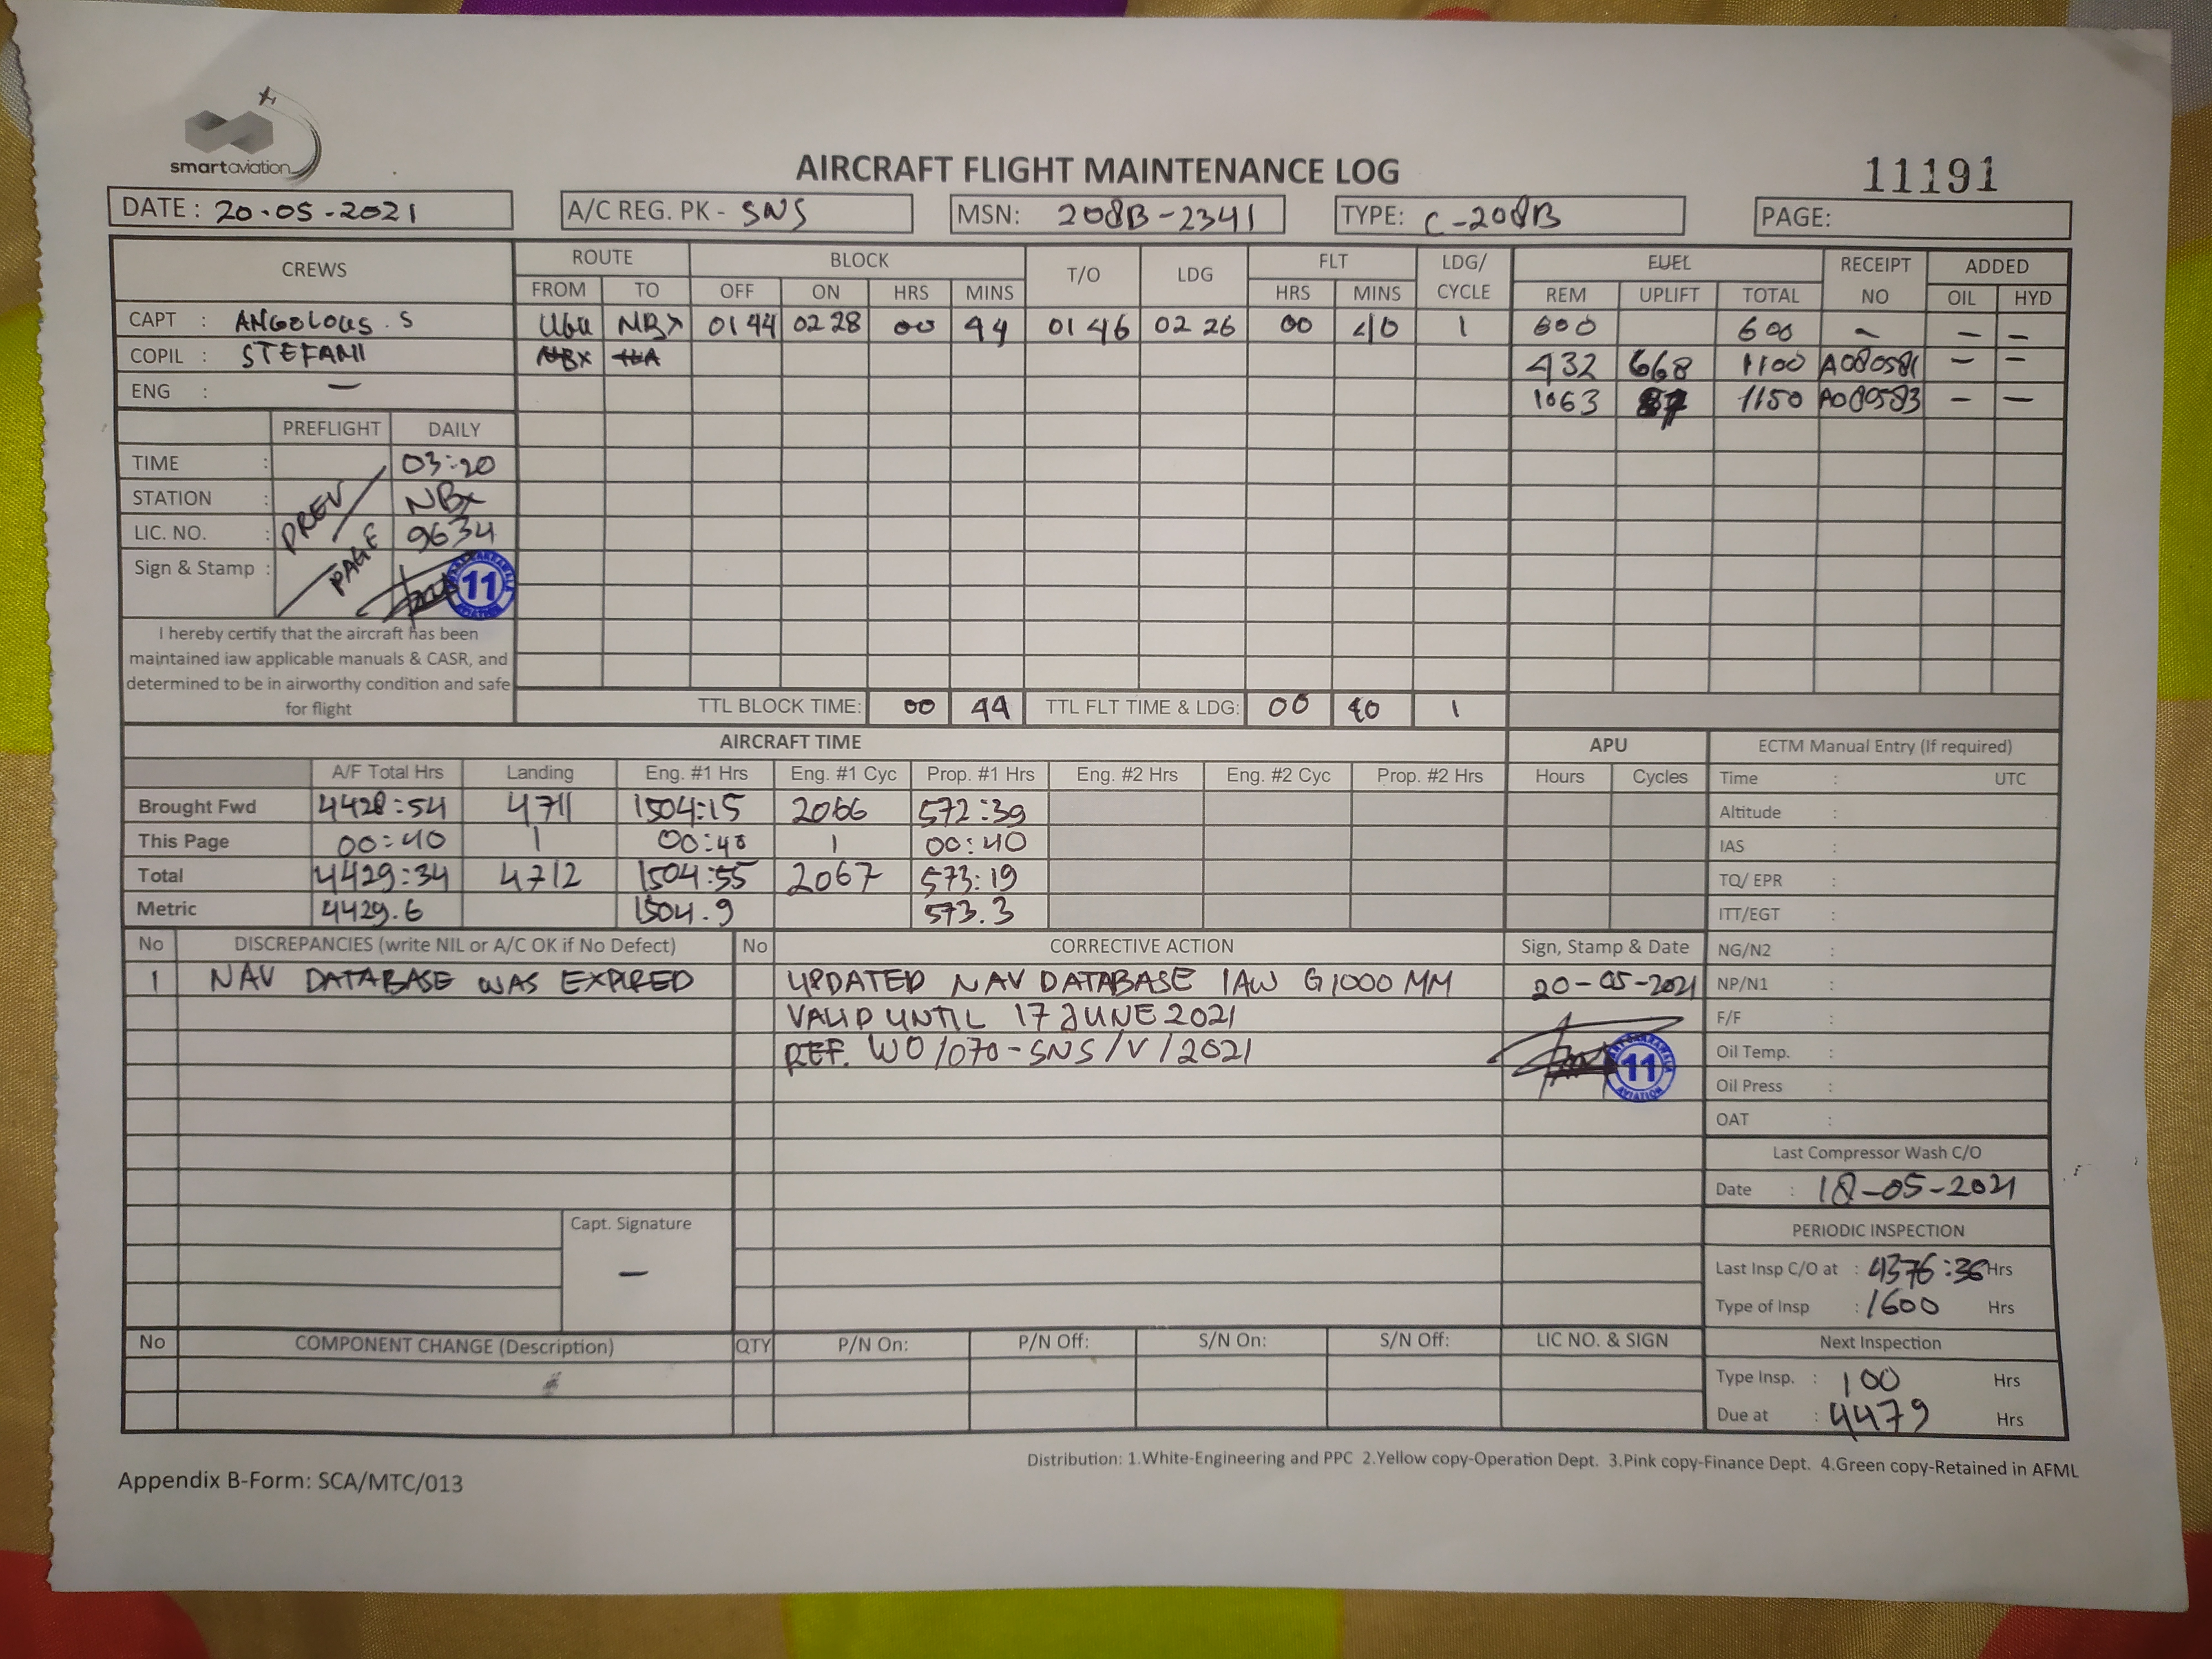 smartaviation
AIRCRAFT FLIGHT MAINTENANCE LOG
11191
DATE : 20-05-2021 A/C REG. PK - SNS MSN: 208B-2341 TYPE: C-208B PAGE:
CREWS ROUTE BLOCK T/O LDG FLT LDG/ CYCLE FUEL RECEIPT NO ADDED
FROM TO OFF ON HRS MINS HRS MINS REM UPLIFT TOTAL OIL HYD
CAPT : ANGOLOUS . S NBX 0144 0228 00 44 0146 0226 00 40 1 600 600 - - -
COPIL : STEFANI NBX 432 668 1100 A080581 - -
ENG : - 1063 87 1150 A080583 - -
PREFLIGHT DAILY
TIME : 03:20
STATION : NBX
LIC. NO. : 9634
PREV / PAGE
Sign & Stamp : 11
AVIATION
I hereby certify that the aircraft has been
maintained iaw applicable manuals & CASR, and
determined to be in airworthy condition and safe
for flight
TTL BLOCK TIME: 00 44 TTL FLT TIME & LDG: 00 40 1
AIRCRAFT TIME APU ECTM Manual Entry (If required)
A/F Total Hrs Landing Eng. #1 Hrs Eng. #1 Cyc Prop. #1 Hrs Eng. #2 Hrs Eng. #2 Cyc Prop. #2 Hrs Hours Cycles Time : UTC
Brought Fwd 4428:54 4711 1504:15 2066 572:39 Altitude :
This Page 00:40 1 00:40 1 00:40 IAS :
Total 4429:34 4712 1504:55 2067 573:19 TQ/ EPR :
Metric 4429.6 1504.9 573.3 ITT/EGT :
No DISCREPANCIES (write NIL or A/C OK if No Defect) No CORRECTIVE ACTION Sign, Stamp & Date NG/N2 :
1 NAV DATABASE WAS EXPIRED UPDATED NAV DATABASE IAW G1000 MM 20-05-2021 NP/N1 :
VALID UNTIL 17 JUNE 2021 F/F :
REF. WO/070-SNS/V/2021 11 Oil Temp. :
AVIATION
Oil Press :
OAT :
Last Compressor Wash C/O
Date : 18-05-2021
Capt. Signature
-
PERIODIC INSPECTION
Last Insp C/O at : 4376:36 Hrs
Type of Insp : 1600 Hrs
No COMPONENT CHANGE (Description) QTY P/N On: P/N Off: S/N On: S/N Off: LIC NO. & SIGN Next Inspection
Type Insp. : 100 Hrs
Due at : 4479 Hrs
Distribution: 1.White-Engineering and PPC 2.Yellow copy-Operation Dept. 3.Pink copy-Finance Dept. 4.Green copy-Retained in AFML
Appendix B-Form: SCA/MTC/013